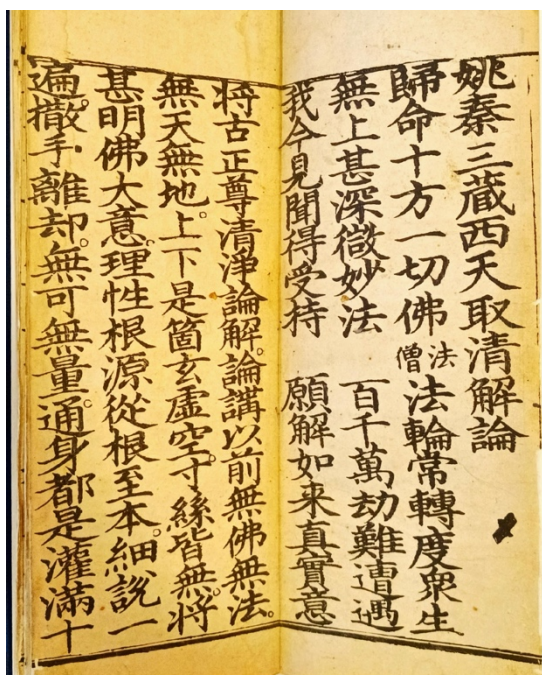 姚秦三藏西天取清解論
歸命十方一切佛 法僧 法輪常轉度衆生
無上甚深微妙法 百千萬劫難遭遇
我今見聞得受持 願解如来真實意
将古正尊清淨論解。論講以前無佛無法。
無天無地。上下是箇玄虛空。寸絲皆無。将
甚明佛大意。理性根源從根至本。細説一
遍。撒手離却。無可無量。通身都是灌滿十